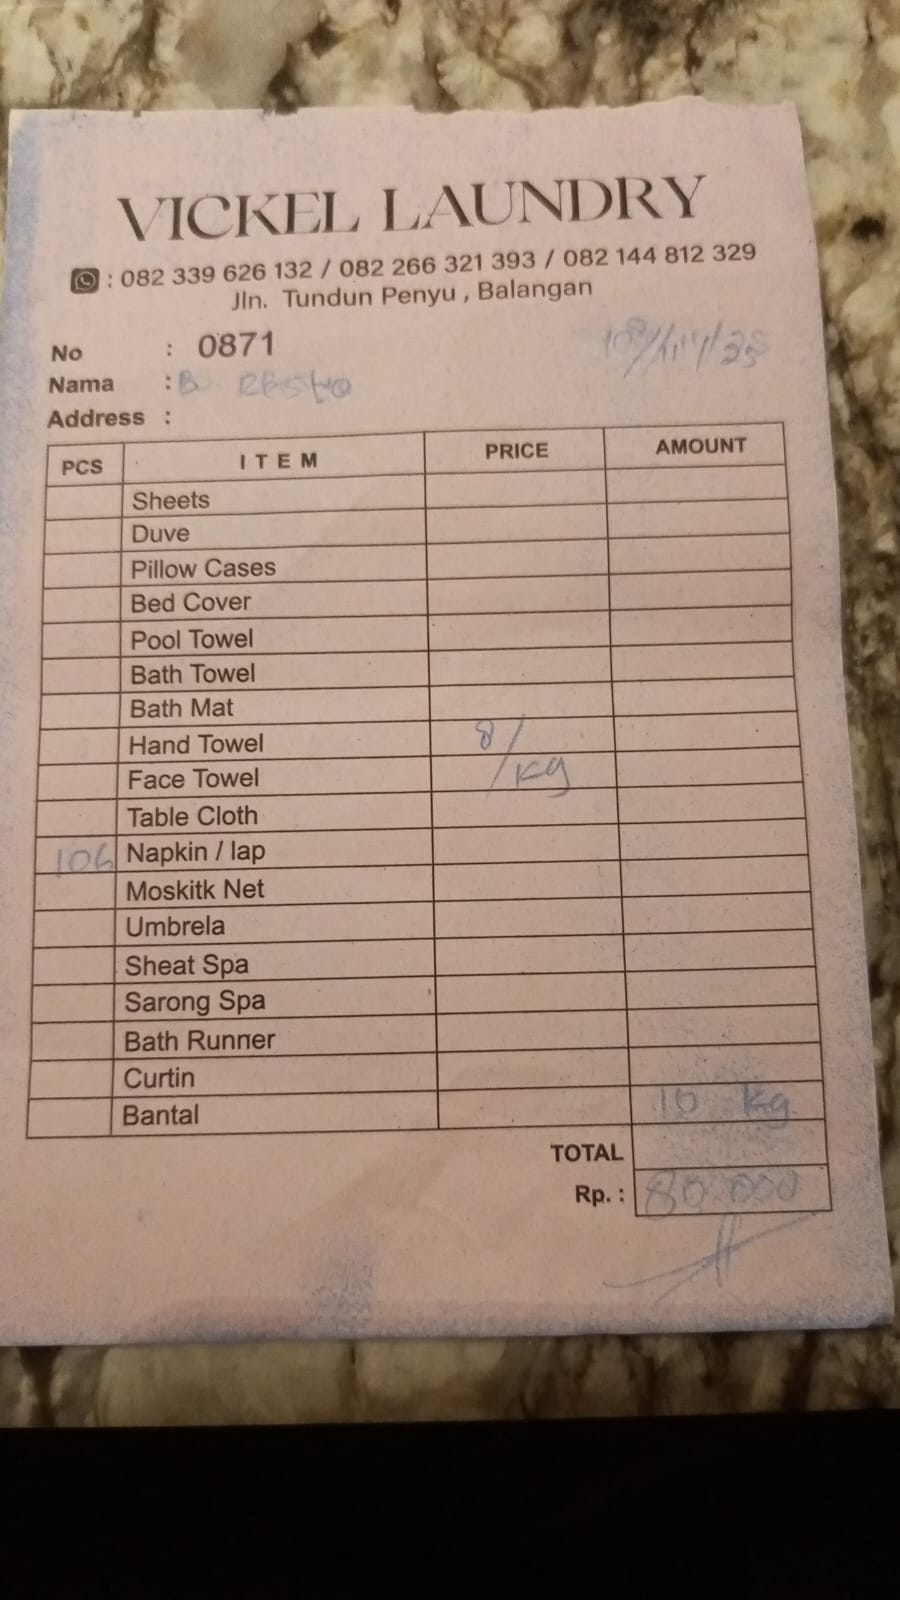 VICKEL LAUNDRY
: 082 339 626 132 / 082 266 321 393 / 082 144 812 329
Jln. Tundun Penyu , Balangan
No : 0871
Nama : B Resto
Address :
PCS ITEM PRICE AMOUNT
Sheets
Duve
Pillow Cases
Bed Cover
Pool Towel
Bath Towel
Bath Mat
Hand Towel 8/
Face Towel /kg
Table Cloth
106 Napkin / lap
Moskitk Net
Umbrela
Sheat Spa
Sarong Spa
Bath Runner
Curtin
Bantal 10 kg
TOTAL
Rp. : 80.000